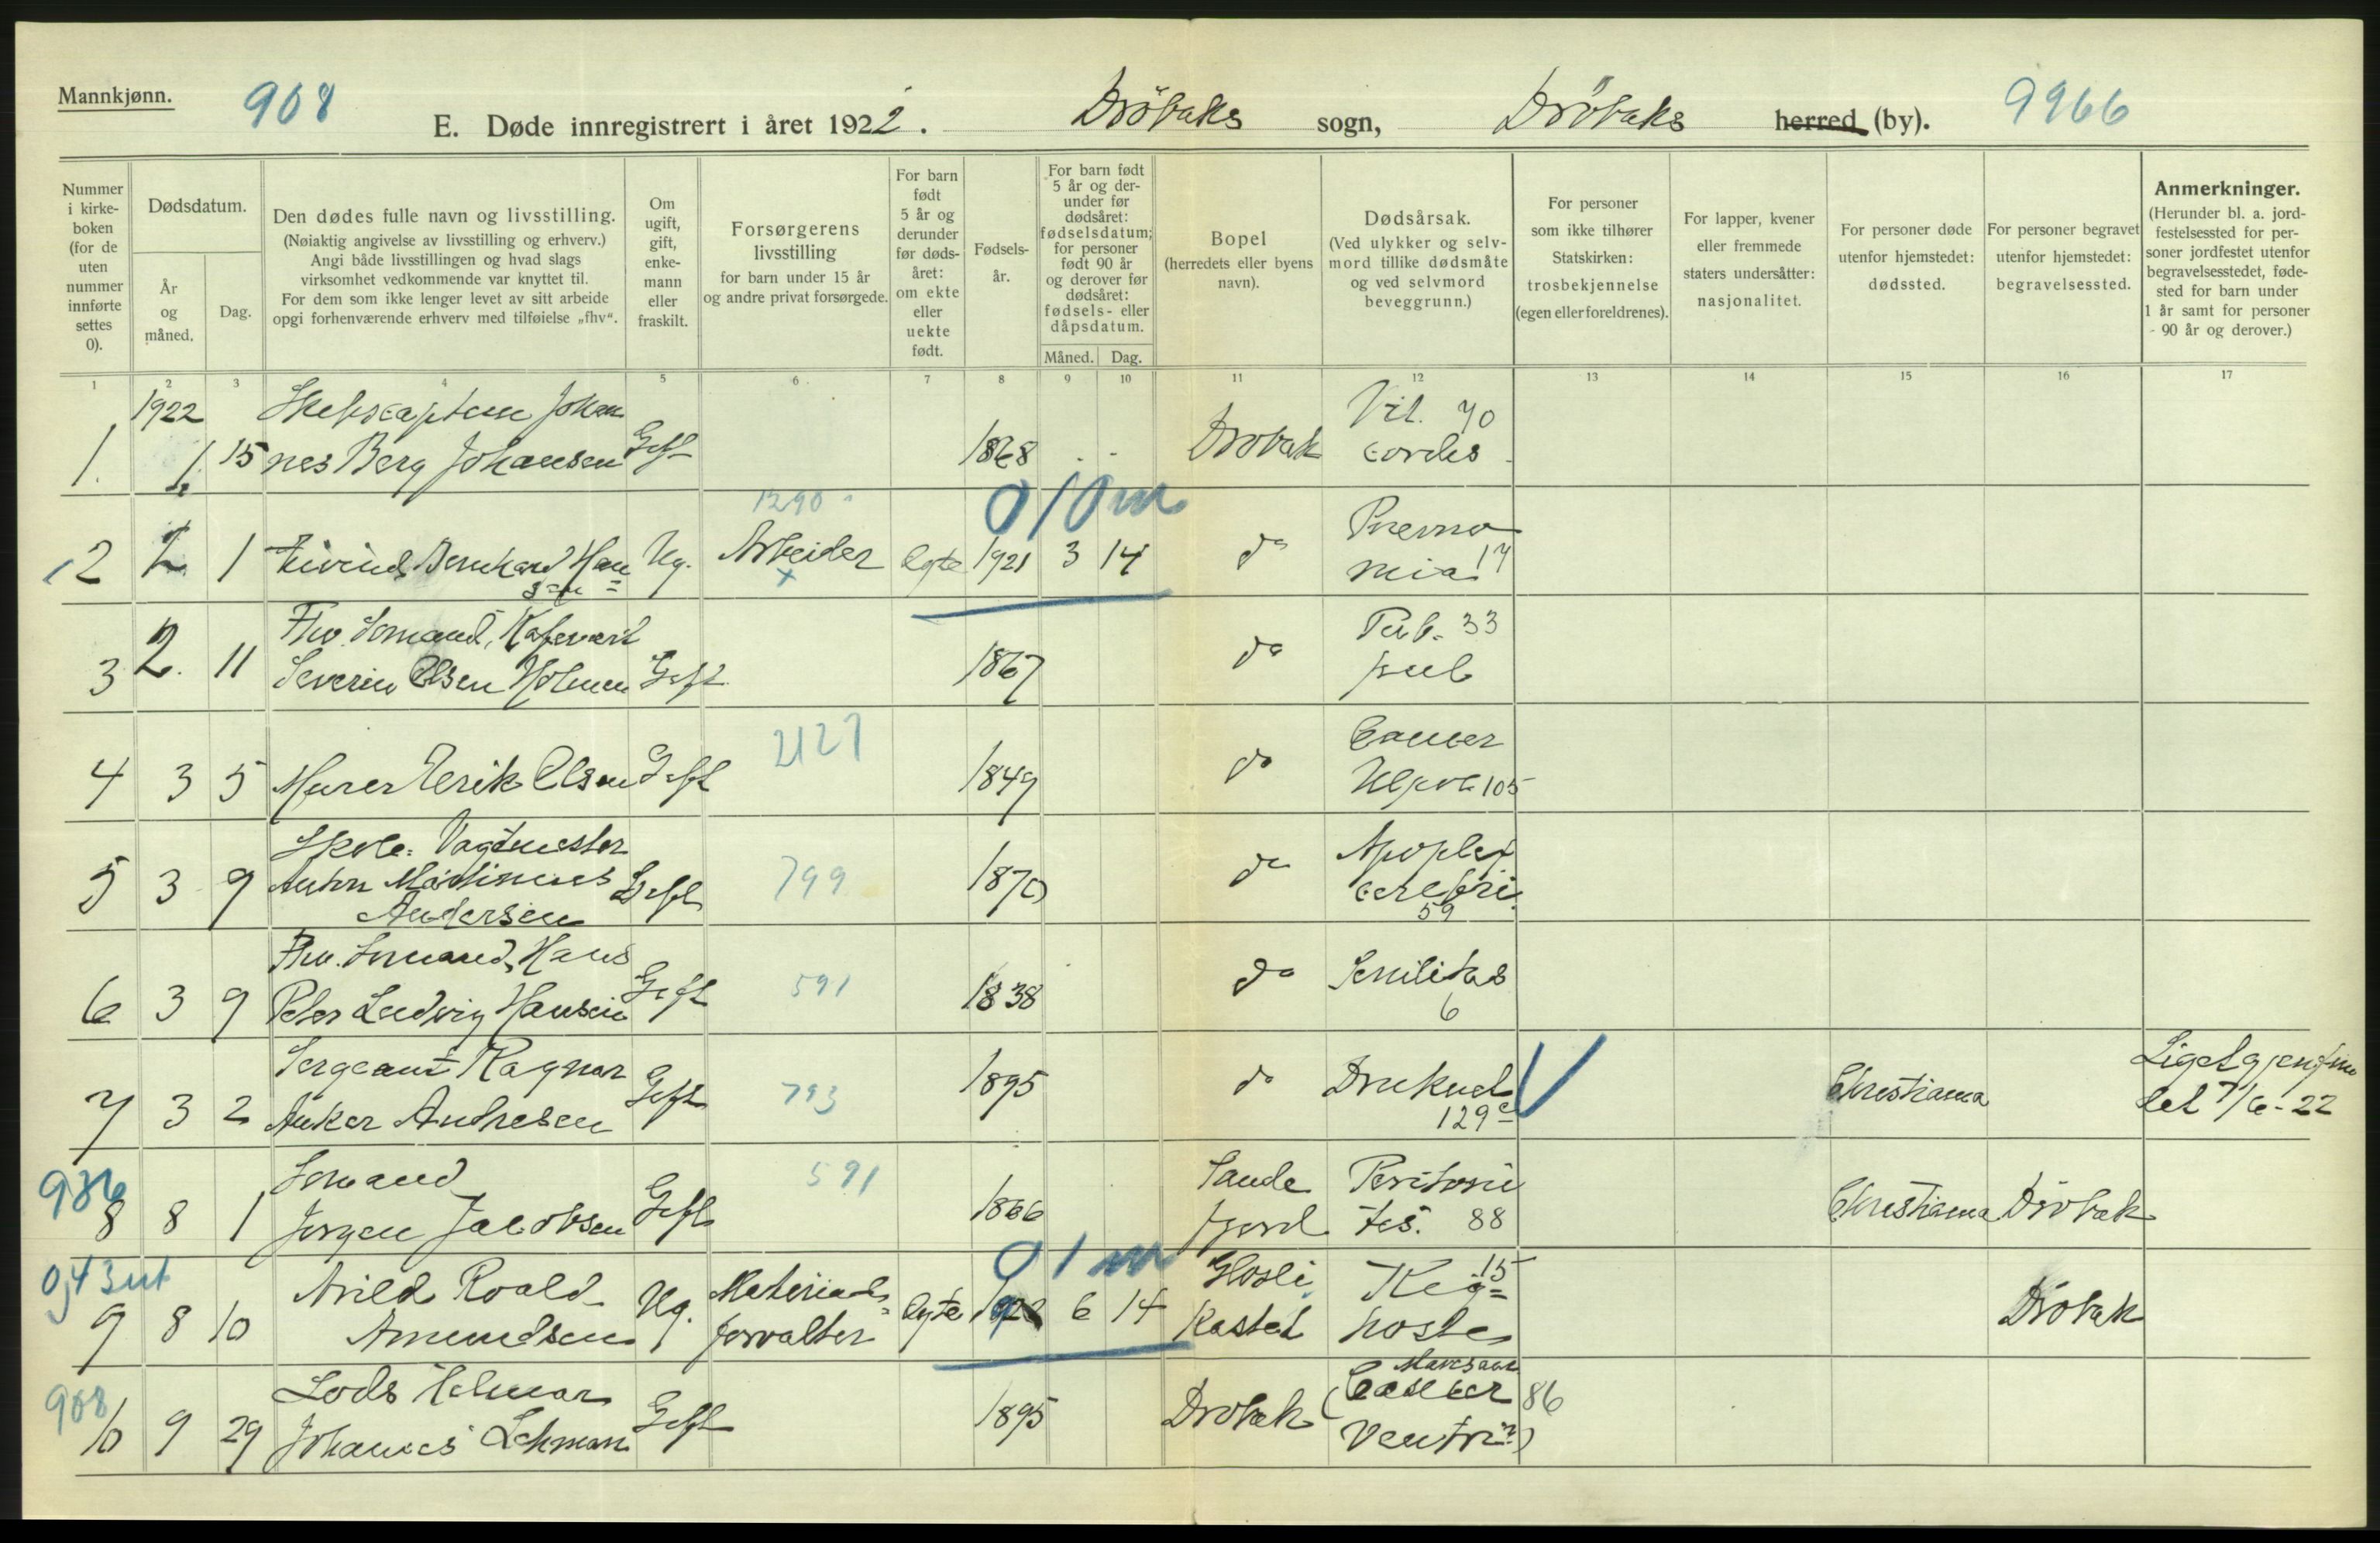 Mannkjønn.
908
E. Døde innregistrert i året 1922. Drøbaks sogn, Drøbaks herred (by).
9966
Nummer i kirke-boken (for de uten nummer innførte settes 0).
Dødsdatum.
År og måned.
Dag.
Den dødes fulle navn og livsstilling.
(Nøiaktig angivelse av livsstilling og erhverv.)
Angi både livsstillingen og hvad slags
virksomhet vedkommende var knyttet til.
For dem som ikke lenger levet av sitt arbeide
opgi forhenværende erhverv med tilføielse „fhv“.
Om ugift, gift, enke-mann eller fraskilt.
Forsørgerens livsstilling
for barn under 15 år
og andre privat forsørgede.
For barn født 5 år og derunder før døds-året: om ekte eller uekte født.
Fødsels-år.
For barn født 5 år og der-under før dødsåret: fødselsdatum; for personer født 90 år og derover før dødsåret: fødsels- eller dåpsdatum.
Måned. Dag.
Bopel
(herredets eller byens navn).
Dødsårsak.
(Ved ulykker og selv-mord tillike dødsmåte og ved selvmord beveggrunn.)
For personer som ikke tilhører Statskirken: trosbekjennelse (egen eller foreldrenes).
For lapper, kvener eller fremmede staters undersåtter: nasjonalitet.
For personer døde utenfor hjemstedet: dødssted.
For personer begravet utenfor hjemstedet: begravelsessted.
Anmerkninger.
(Herunder bl. a. jord-festelsessted for per-soner jordfestet utenfor begravelsesstedet, føde-sted for barn under 1 år samt for personer - 90 år og derover.)
1 2 3 4 5 6 7 8 9 10 11 12 13 14 15 16 17
1922 Vit. 70
1. 1. 15 nes Berg Johansen Gift 1868 Drøbak cordis
1290 010 m
2 2 1 Eivind Bernhard Han= Ug. Arbeider Ægte 1921 3 14 do Pnevmo
sen nia 17
Fhv. Sømand, Kafevert Tub. 33
3 2. 11 Severin Olsen Holmen Gift 1867 do pul
2127 Cancer
4 3 5 Murer Erik Olsen Gift 1849 do 105
Skole. Vagtmester Apoplex
5 3 9 Anton Martinius Gift 799 1870 do cerebri
Andersen 59
Fhv. Sømand, Hans
6 3 9 Peter Ludvig Hansen Gift 591 1838 do Senilitas
6
Sergeant Ragnar
7 3 2 Anker Andresen Gift 793 1895 do Druknet Christiania
129 7/6-22
936 Sømand 591 Sande Peritoni
8 8 1 Jørgen Jacobsen Gift 1866 fjord tis. 88 Christiania Drøbak
01 m
Arild Roald Material= 15
9 8 10 Amundsen Ug. forvalter Ægte 1922 6 14 Kastet Kig= hoste Drøbak
908 Lods Helmar Mavesaar
10 9 29 Johannes Lehman Gift 1895 Drøbak (Cancer 86
Ventri)